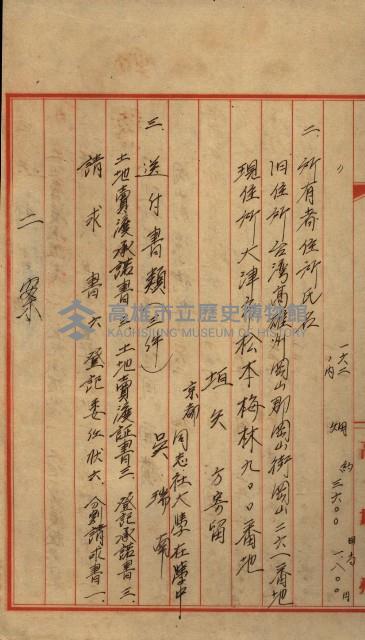 〃 一六二ノ内 畑 約三六〇〇 甲当 一八〇〇円
二、所有者住所氏名
旧住所 台湾高雄州岡山郡岡山街岡山二六一番地
現住所 大津市松本梅林九〇〇番地
垣矢方寄留
京都同志社大学在学中
呉瑞
三、送付書類（三件）
土地売渡承諾書三 土地売渡証書三 登記承諾書三
請求書六 登記委任状六 分割請求書一
二案
高雄市立歷史博物館
KAOHSIUNG MUSEUM OF HISTORY
高雄州